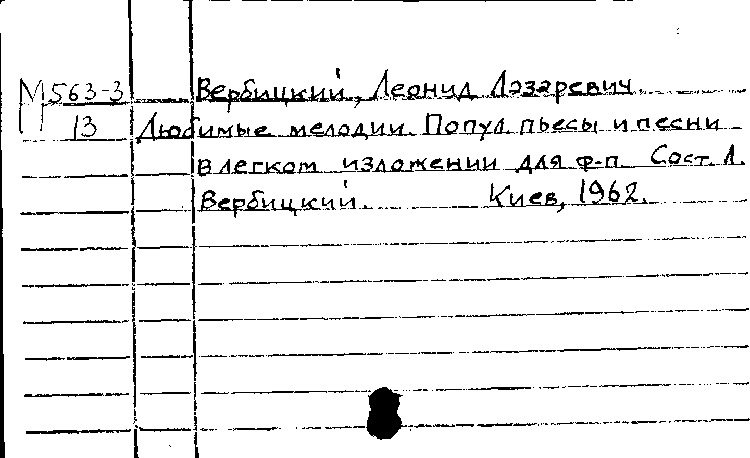 М563-3 Вербицкий, Леонид Лазаревич.
13 Любимые мелодии. Попул. пьесы и песни
в легком изложении для ф-п. Сост. Л.
Вербицкий. Киев, 1962.